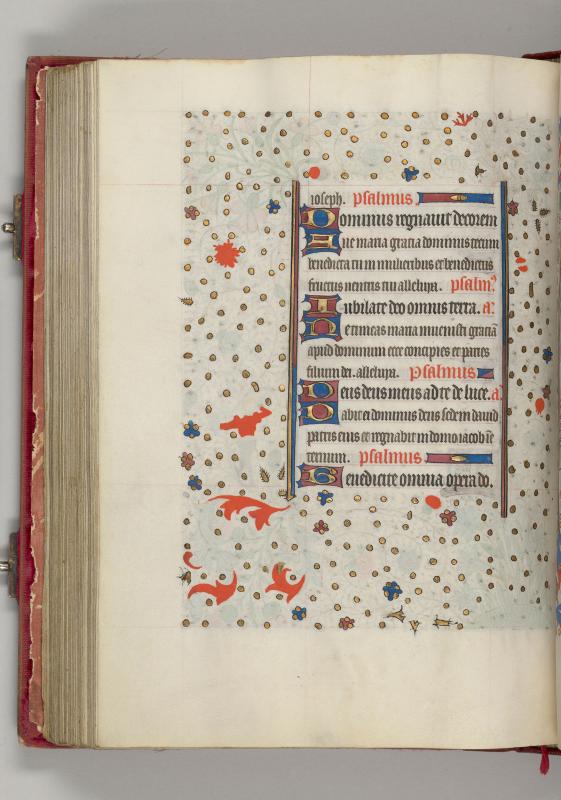 ioseph. psalmus
Dominus regnavit decorem
Ave maria gracia dominus tecum
benedicta tu in mulieribus et benedictus
fructus ventris tui alleluya. psalm
Iubilate deo omnis terra. a
Ne timeas maria invenisti graciam
apud dominum ecce concipies et paries
filium dei. alleluya. psalmus
Deus deus meus ad te de luce. a
Dabit ei dominus deus sedem david
patris eius et regnabit in domo iacob in e
ternum. psalmus
Benedicite omnia opera do.